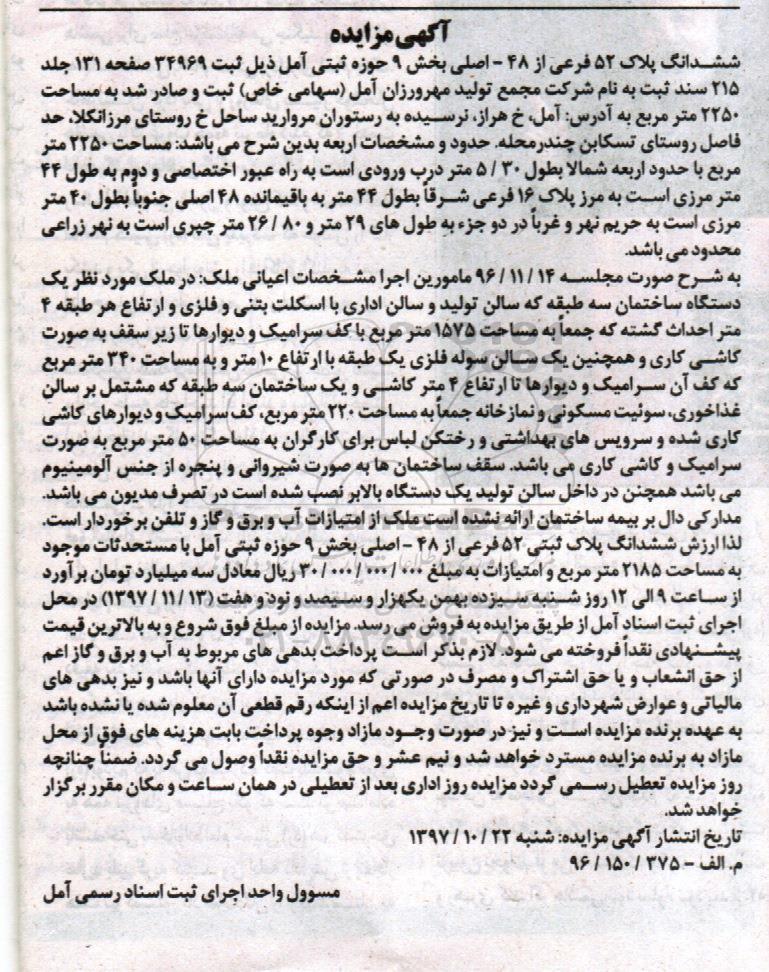 آگهی مزایده
ششدانگ پلاک ۵۲ فرعی از ۴۸ - اصلی بخش ۹ حوزه ثبتی آمل ذیل ثبت ۳۴۹۶۹ صفحه ۱۳۱ جلد
۲۱۵ سند ثبت به نام شرکت مجمع تولید مهرورزان آمل (سهامی خاص) ثبت و صادر شد به مساحت
۲۲۵۰ متر مربع به آدرس: آمل، خ هراز، نرسیده به رستوران مروارید ساحل خ روستای مرزانکلا، حد
فاصل روستای تسکابن چندرمحله. حدود و مشخصات اربعه بدین شرح می باشد: مساحت ۲۲۵۰ متر
مربع با حدود اربعه شمالا بطول ۳۰ / ۵ متر درب ورودی است به راه عبور اختصاصی و دوم به طول ۴۴
متر مرزی است به مرز پلاک ۱۶ فرعی شرقاً بطول ۴۴ متر به باقیمانده ۴۸ اصلی جنوباً بطول ۴۰ متر
مرزی است به حریم نهر و غرباً در دو جزء به طول های ۲۹ متر و ۸۰ / ۲۶ متر چپری است به نهر زراعی
محدود می باشد.
به شرح صورت مجلسه ۱۴ / ۱۱ / ۹۶ مامورین اجرا مشخصات اعیانی ملک: در ملک مورد نظر یک
دستگاه ساختمان سه طبقه که سالن تولید و سالن اداری با اسکلت بتنی و فلزی و ارتفاع هر طبقه ۴
متر احداث گشته که جمعاً به مساحت ۱۵۷۵ متر مربع با کف سرامیک و دیوارها تا زیر سقف به صورت
کاشی کاری و همچنین یک سالن سوله فلزی یک طبقه با ارتفاع ۱۰ متر و به مساحت ۳۴۰ متر مربع
که کف آن سرامیک و دیوارها تا ارتفاع ۴ متر کاشی و یک ساختمان سه طبقه که مشتمل بر سالن
غذاخوری، سوئیت مسکونی و نمازخانه جمعاً به مساحت ۲۲۰ متر مربع، کف سرامیک و دیوارهای کاشی
کاری شده و سرویس های بهداشتی و رختکن لباس برای کارگران به مساحت ۵۰ متر مربع به صورت
سرامیک و کاشی کاری می باشد. سقف ساختمان ها به صورت شیروانی و پنجره از جنس آلومینیوم
می باشد همچنن در داخل سالن تولید یک دستگاه بالابر نصب شده است در تصرف مدیون می باشد.
مدارکی دال بر بیمه ساختمان ارائه نشده است ملک از امتیازات آب و برق و گاز و تلفن برخوردار است.
لذا ارزش ششدانگ پلاک ثبتی ۵۲ فرعی از ۴۸ - اصلی بخش ۹ حوزه ثبتی آمل با مستحدثات موجود
به مساحت ۲۱۸۵ متر مربع و امتیازات به مبلغ ۰۰۰ / ۰۰۰ / ۰۰۰ / ۳۰ ریال معادل سه میلیارد تومان برآورد
از ساعت ۹ الی ۱۲ روز شنبه ما سیزده بهمن یکهزار و سیصد و نود و هفت (۱۳ / ۱۱ / ۱۳۹۷) در محل
اجرای ثبت اسناد آمل از طریق مزایده به فروش می رسد. مزایده از مبلغ فوق شروع و به بالاترین قیمت
پیشنهادی نقداً فروخته می شود. لازم بذکر است پرداخت بدهی های مربوط به آب و برق و گاز اعم
از حق انشعاب و یا حق اشتراک و مصرف در صورتی که مورد مزایده دارای آنها باشد و نیز بدهی های
مالیاتی و عوارض شهرداری و غیره تا تاریخ مزایده اعم از اینکه رقم قطعی آن معلوم شده یا نشده باشد
به عهده برنده مزایده است و نیز در صورت وجود مازاد وجوه پرداخت بابت هزینه های فوق از محل
مازاد به برنده مزایده مسترد خواهد شد و نیم عشر و حق مزایده نقداً وصول می گردد. ضمناً چنانچه
روز مزایده تعطیل رسمی گردد مزایده روز اداری بعد از تعطیلی در همان ساعت و مکان مقرر برگزار
خواهد شد.
تاریخ انتشار آگهی مزایده: شنبه ۲۲ / ۱۰ / ۱۳۹۷
م. الف - ۳۷۵ / ۱۵۰ / ۹۶
مسوول واحد اجرای ثبت اسناد رسمی آمل